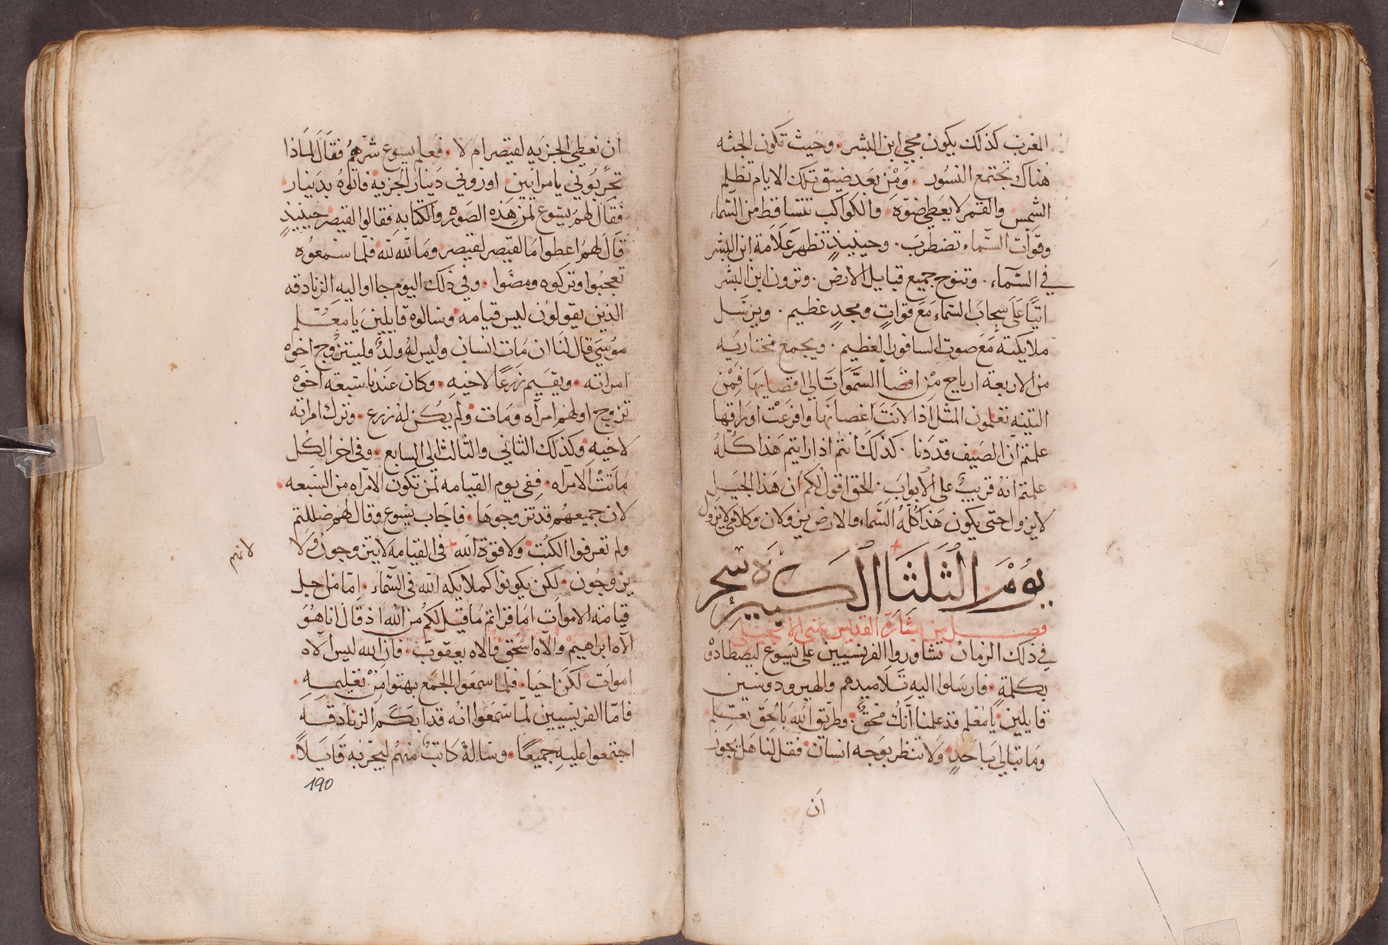 المغرب كذلك يكون مجي ابن البشر. وحيث تكون الجثه
هناك تجتمع النسور. ومن بعد ضيق تلك الايام تظلم
الشمس والقمر لا يعطي ضوه. والكواكب تتساقط من السماء
وقوات السماء تضطرب. وحينيذٍ تظهر علامة ابن البشر
في السماء. وتنوح جميع قبايل الارض. وترون ابن البشر
اتيًا على سحاب السماء مع قواتٍ ومجدٍ عظيم. ويرسل
ملايكته مع صوت السافور العظيم. ويجمع مختاريه
من الاربعه ارياح من اقصا السموات الي اقصايها فمن
التينه تعلمون المثل اذا لانت اغصانها وافرعت اوراقها
علمتم ان الصيف قد دنا. كذلك انتم اذا رايتم هذا كله
علمتم انه قريبٌ على الابواب. الحق اقول لكم ان هذا الجيل
لا يزول حتى يكون هذا كله السماء والارض يزولان وكلامي لا يزول
يوم الثلثا الكبيره سحر
فصل من بشارة القديس متي الانجيلي
في ذلك الزمان تشاوروا الفرنسيين على يسوع ليصطادوه
بكلمةٍ. فارسلوا اليه تلاميدهم والهيرودوسين
قايلين يا معلم قد علمنا انك محقٌ. وطريق الله بالحق تعلم
وما تبالي باحدٍ ولا تنظر بوجه انسان فقل لنا هل يجوز
ان
ان نعطي الجزيه لقيصر ام لا. فعلم يسوع شرهم فقال لماذا
تجربوني يا مرايين. اوروني دينار الجزيه فاتوه بدينار.
فقال لهم يسوع لمن هذه الصوره والكتابه فقالوا لقيصر حينيذٍ
قال لهم اعطوا ما لقيصر لقيصر وما لله لله فلما سمعوه
تعجبوا وتركوه ومضوا. وفي ذلك اليوم جااوا اليه الزنادقه
الذين يقولون ليس قيامه وسالوه قايلين يا معلم
موسى قال لنا ان مات انسان وليس له ولدٌ وليتزوج اخوه
امراته. ويقيم زرعًا لاخيه. وكان عندنا سبعة اخوه
تزوج اولهم امراه ومات ولم يكن له زرع. وترك امراته
لاخيه وكذلك الثاني والثالث الي السابع. وفي اخر الكل
ماتت الامراه. ففي يوم القيامه لمن تكون الامراه من السبعه.
لان جميعهم قد تزوجوها. فاجاب يسوع وقال لهم ضللتم
ولم تعرفوا الكتب ولا قوة الله في القيامه لا يتزوجون ولا
لانهم
يزوجون. لكن يكونوا كملايكة الله في السماء. اما من اجل
قيامة الاموات اما قراتم ما قيل لكم من الله اذ قال انا هو
الاه ابراهيم والاه اسحق والاه يعقوب. فان الله ليس الاه
اموات لكن احيا. فلما سمعوا الجمع بهتوا من تعليمه.
فاما الفريسيين لما سمعوا انه قد ابكم الزنادقه
اجتمعوا عليه جميعًا. وساله كاتبٌ منهم ليجربه قايلاً.
190